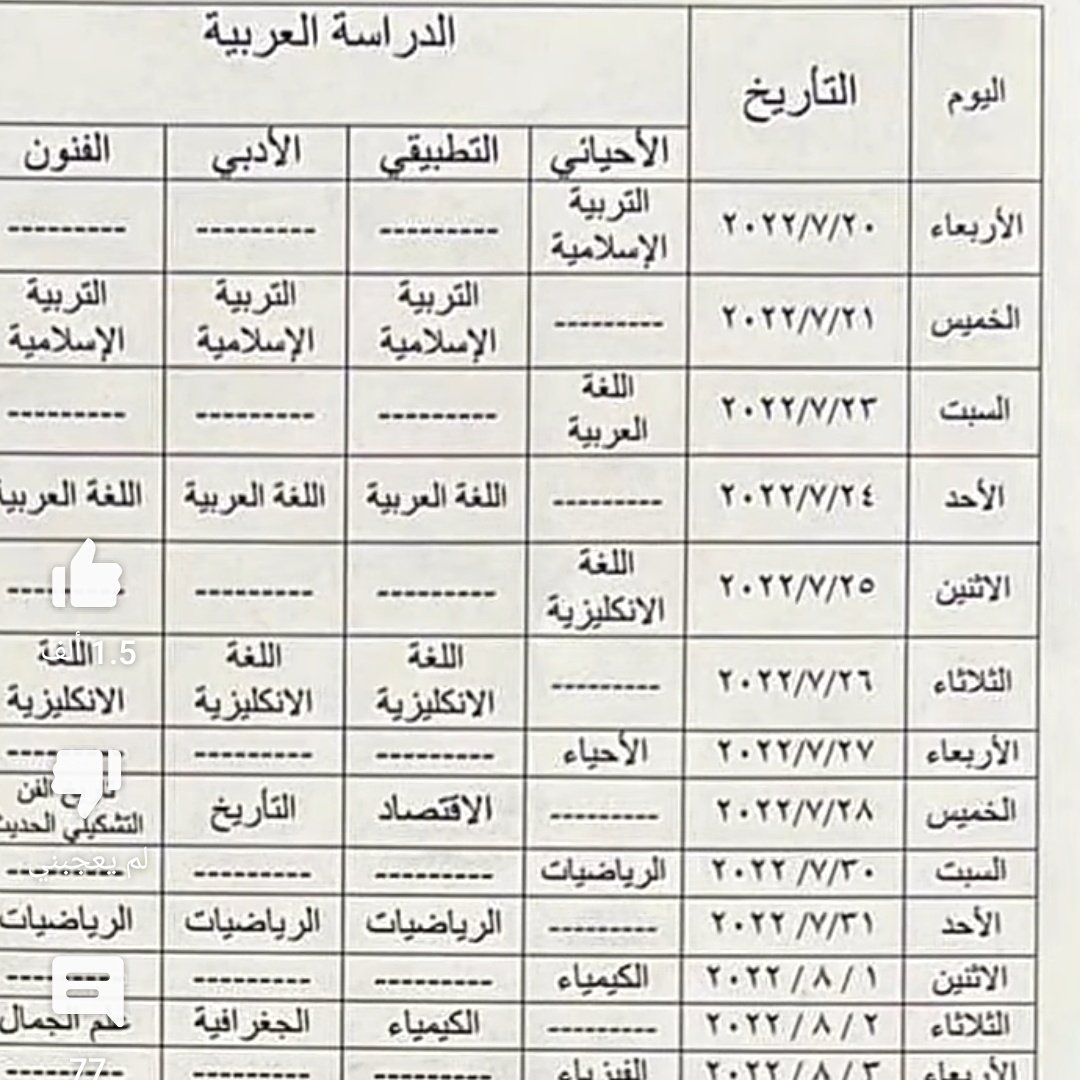 الدراسة العربية
اليوم التأريخ
الأحيائي التطبيقي الأدبي الفنون
الأربعاء ٢٠٢٢/٧/٢٠ التربية الإسلامية --------- --------- ---------
الخميس ٢٠٢٢/٧/٢١ --------- التربية الإسلامية التربية الإسلامية التربية الإسلامية
السبت ٢٠٢٢/٧/٢٣ اللغة العربية --------- --------- ---------
الأحد ٢٠٢٢/٧/٢٤ --------- اللغة العربية اللغة العربية اللغة العربية
الاثنين ٢٠٢٢/٧/٢٥ اللغة الانكليزية --------- --------- ---------
الثلاثاء ٢٠٢٢/٧/٢٦ --------- اللغة الانكليزية اللغة الانكليزية اللغة الانكليزية
1.5 ألف
الأربعاء ٢٠٢٢/٧/٢٧ الأحياء --------- --------- ---------
الخميس ٢٠٢٢/٧/٢٨ --------- الاقتصاد التأريخ الفن التشكيلي الحديث
السبت ٢٠٢٢/٧/٣٠ الرياضيات --------- --------- ---------
لم يعجبني
الأحد ٢٠٢٢/٧/٣١ --------- الرياضيات الرياضيات الرياضيات
الاثنين ٢٠٢٢/٨/١ الكيمياء --------- --------- ---------
الثلاثاء ٢٠٢٢/٨/٢ --------- الكيمياء الجغرافية علم الجمال
الأربعاء ٢٠٢٢/٨/٣ الفيزياء --------- --------- ---------
77